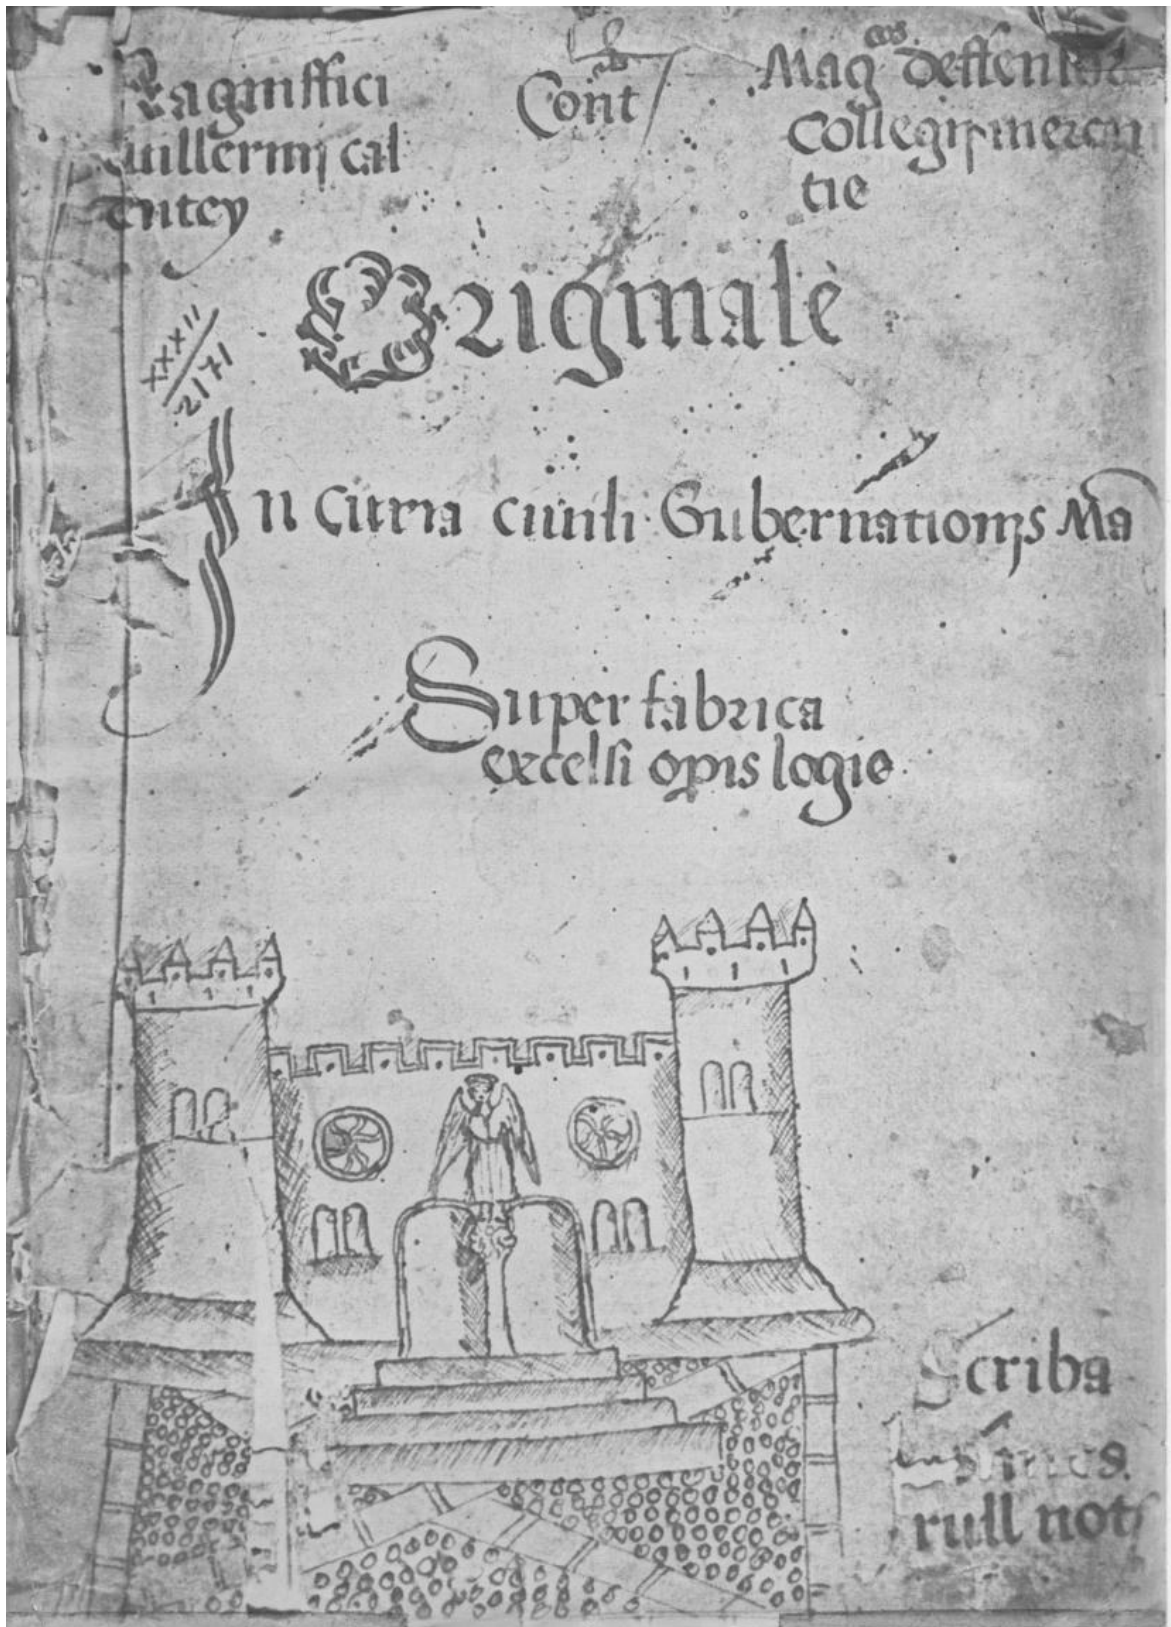 Magniffici
Guillermj cal
dentey
Cont
Magcos deffensor
Collegij mercn
tie
Originale
xxxii
2171
In Curia ciuili Gubernationjs Ma
Super fabrica
excelsi opis logie
Scriba
rull not